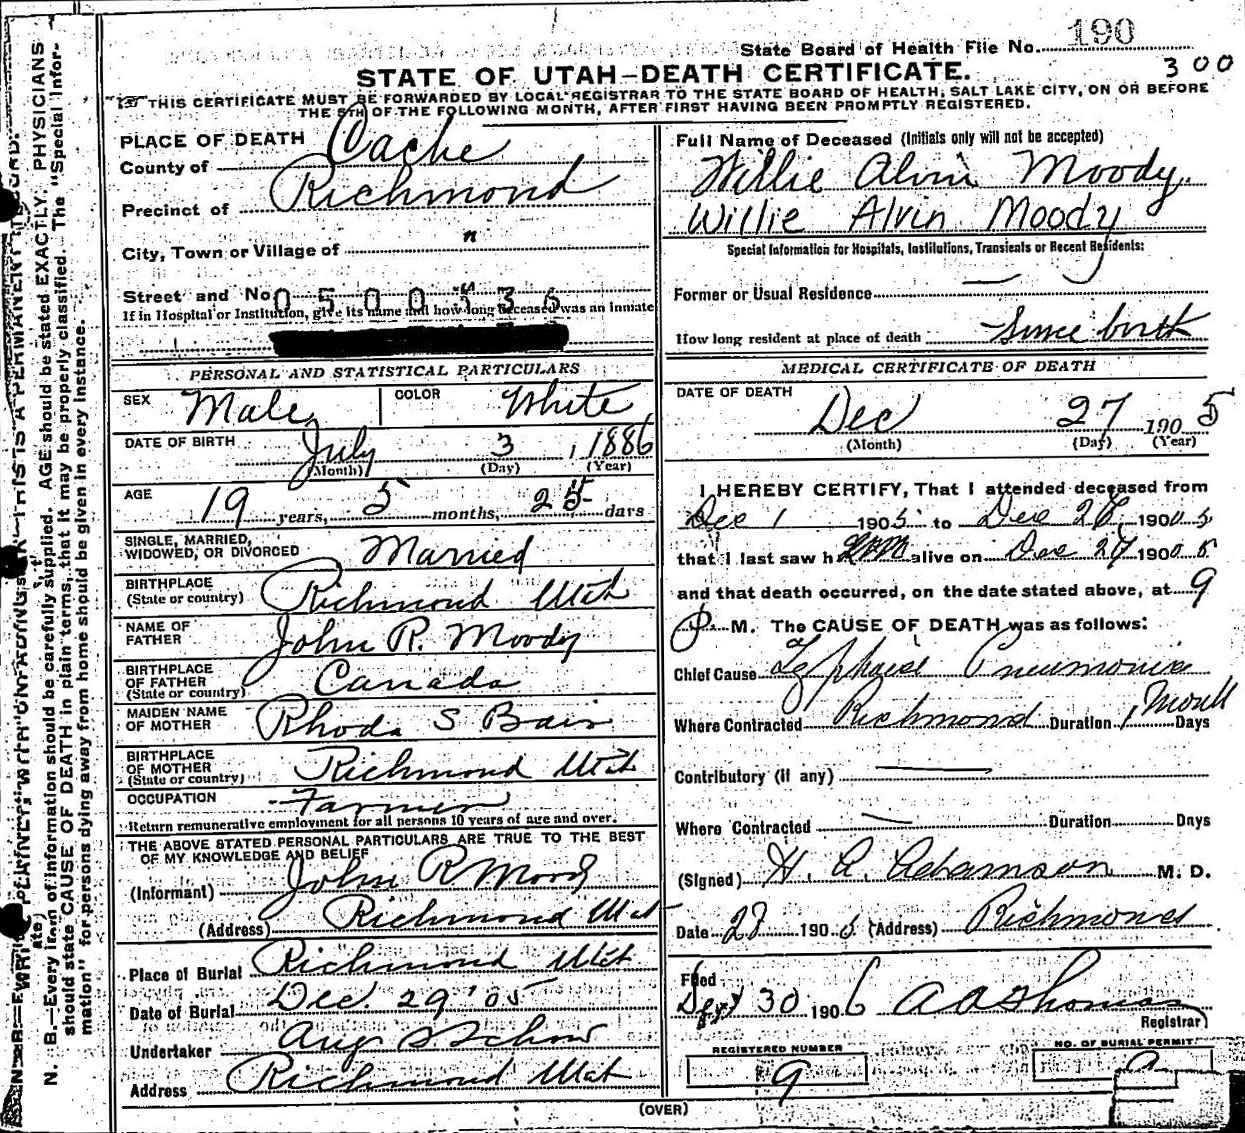 190
State Board of Health File No.
300
STATE OF UTAH—DEATH CERTIFICATE.
THIS CERTIFICATE MUST BE FORWARDED BY LOCAL REGISTRAR TO THE STATE BOARD OF HEALTH, SALT LAKE CITY, ON OR BEFORE
THE 5TH OF THE FOLLOWING MONTH, AFTER FIRST HAVING BEEN PROMPTLY REGISTERED.
PLACE OF DEATH
County of Cache
Precinct of Richmond
City, Town or Village of "
Street and No. "
0500336
If in Hospital or Institution, give its name and how long deceased was an inmate
PERSONAL AND STATISTICAL PARTICULARS
SEX Male COLOR White
DATE OF BIRTH July 3, 1886
(Month) (Day) (Year)
AGE 19 years, 5 months, 25 days
SINGLE, MARRIED,
WIDOWED, OR DIVORCED Married
BIRTHPLACE
(State or country) Richmond Utah
NAME OF
FATHER John R. Moody
BIRTHPLACE
OF FATHER
(State or country) Canada
MAIDEN NAME
OF MOTHER Rhoda S Bair
BIRTHPLACE
OF MOTHER
(State or country) Richmond Utah
OCCUPATION Farmer
Return remunerative employment for all persons 10 years of age and over.
THE ABOVE STATED PERSONAL PARTICULARS ARE TRUE TO THE BEST
OF MY KNOWLEDGE AND BELIEF
(Informant) John R Moody
(Address) Richmond Utah
Place of Burial Richmond Utah
Date of Burial Dec. 29 '05
Undertaker Aug S Schow
Address Richmond Utah
Full Name of Deceased (Initials only will not be accepted)
Willie Alvin Moody
Willie Alvin Moody
Special Information for Hospitals, Institutions, Transients or Recent Residents:
Former or Usual Residence —
How long resident at place of death Since birth
MEDICAL CERTIFICATE OF DEATH
DATE OF DEATH
Dec 27 1905
(Month) (Day) (Year)
I HEREBY CERTIFY, That I attended deceased from
Dec 1 1905 to Dec 1905
that I last saw him alive on Dec 27 1905
and that death occurred, on the date stated above, at 9
P. M. The CAUSE OF DEATH was as follows:
Chief Cause Pneumonia
Where Contracted Richmond Duration 1 Month Days
Contributory (if any) —
Where Contracted — Duration Days
(Signed) H. A. Adamson M. D.
Date 28 1905 (Address) Richmond
Filed
30 1906 A A Thomas
Registrar
REGISTERED NUMBER
9
NO. OF BURIAL PERMIT
9
(OVER)
N. B.—Every item of information should be carefully supplied. AGE should be stated EXACTLY. PHYSICIANS
should state CAUSE OF DEATH in plain terms, that it may be properly classified. The "Special Infor-
mation" for persons dying away from home should be given in every instance.